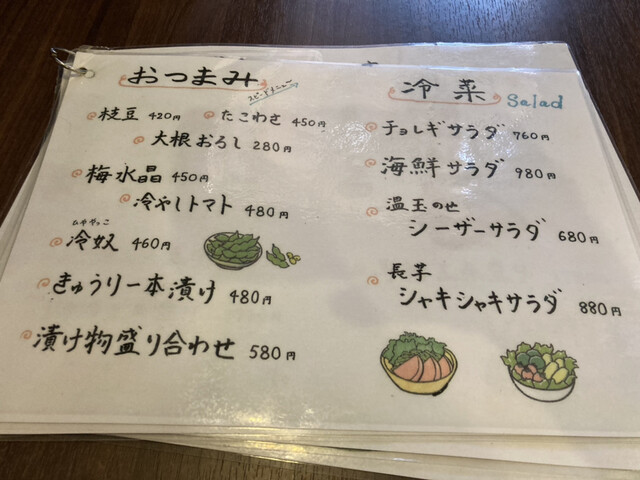 おつまみ
スピードメニュー
枝豆 420円
たこわさ 450円
大根おろし 280円
梅水晶 450円
冷やしトマト 480円
ひややっこ
冷奴 460円
きゅうり一本漬け 480円
漬け物盛り合わせ 580円
冷菜
Salad
チョレギサラダ 760円
海鮮サラダ 980円
温玉のせ
シーザーサラダ 680円
長芋
シャキシャキサラダ 880円